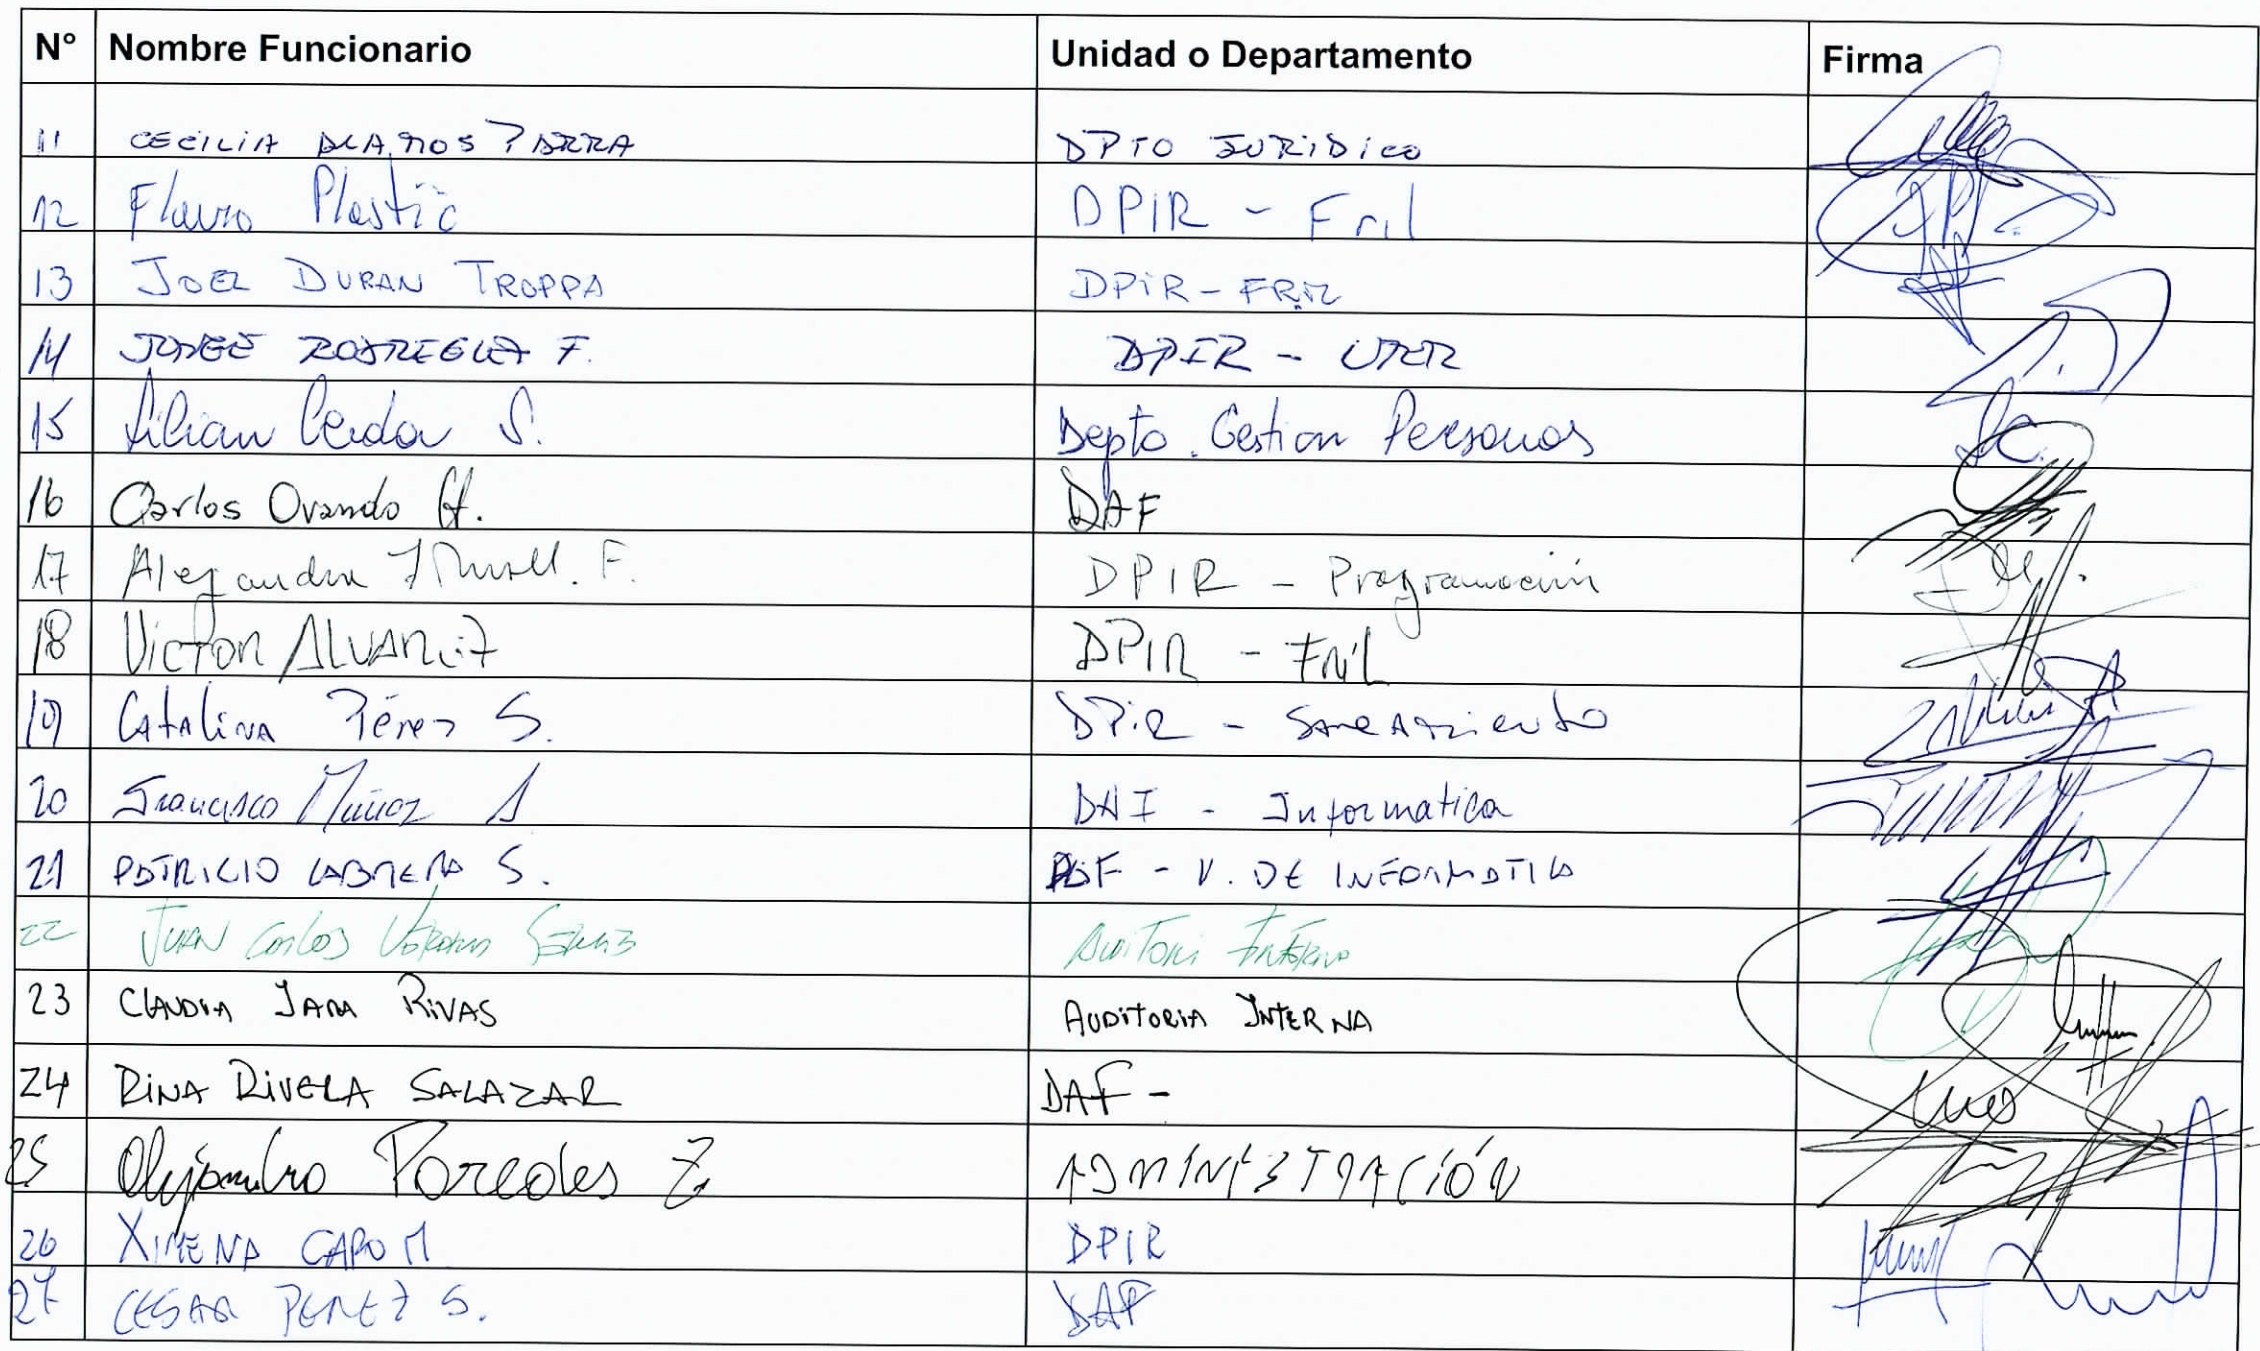 N° Nombre Funcionario Unidad o Departamento Firma
11 CECILIA ALAMOS PARRA DPTO JURIDICO
12 Flavio Plastic DPIR - Fril
13 JOEL DURAN TROPPA DPIR - FRIL
14 JORGE F. DPIR -
15 Lilian Cerda S. Depto. Gestion Personas
16 Carlos Ovando H. DAF
17 Alejandra F. DPIR - Programación
18 Victor ALVAREZ DPIR - FRIL
19 Catalina Pérez S. DPIR - Saneamiento
20 Francisco Muñoz A - Informatica
21 PATRICIO CABRERA S. DAF - U. DE INFORMATICA
22 JUAN Carlos
23 CLAUDIA JARA RIVAS AUDITORIA INTERNA
24 RINA RIVERA SALAZAR DAF -
25 Alejandro Paredes Z ADMINISTRACIÓN
26 XIMENA CAPO M DPIR
27 CESAR PEREZ S. DAF